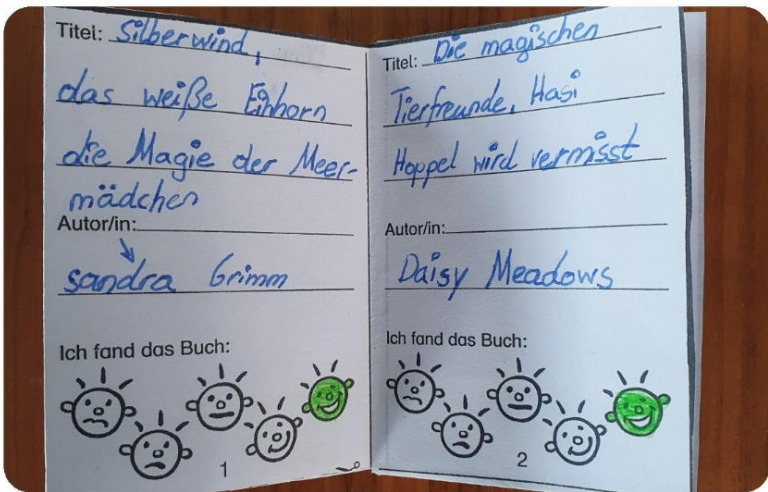 Titel: Silberwind,
das weiße Einhorn
die Magie der Meer-
mädchen
Autor/in:
sandra Grimm
Ich fand das Buch:
1
Titel: Die magischen
Tierfreunde, Hasi
Hoppel wird vermisst
Autor/in:
Daisy Meadows
Ich fand das Buch:
2